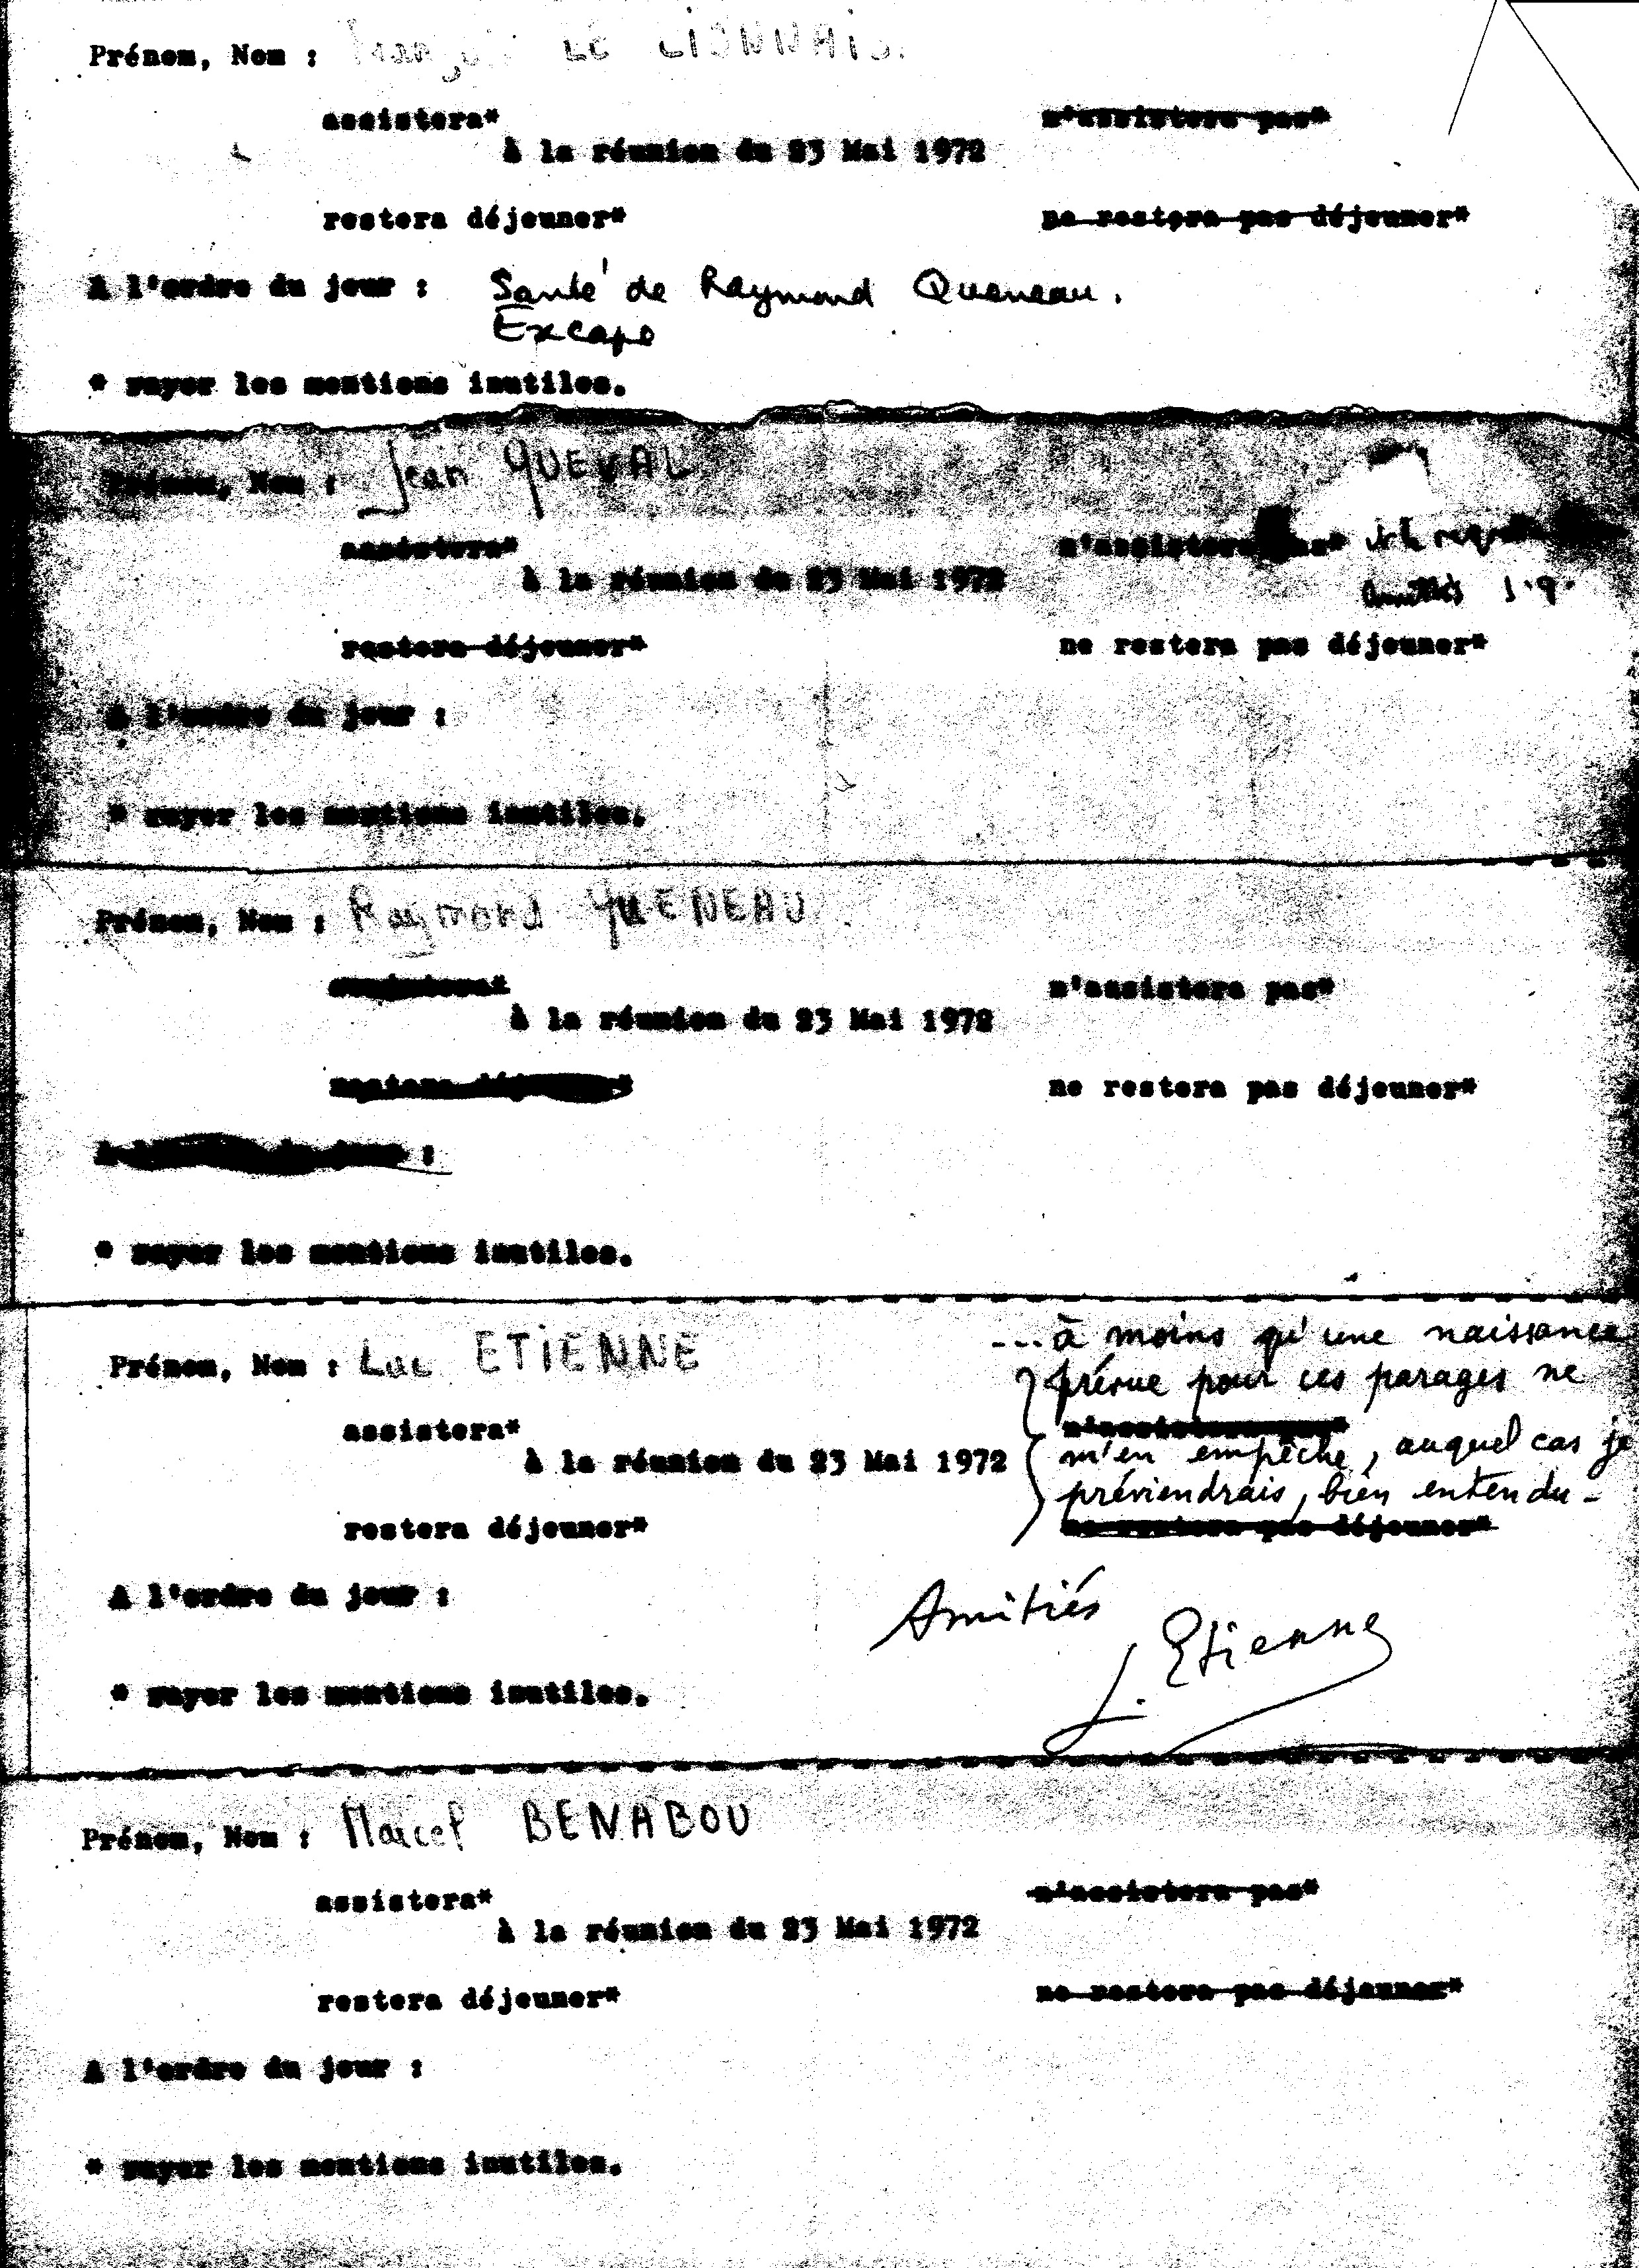 Prénom, Nom : François LE LIONNAIS.
assistera* n'assistera pas*
à la réunion du 23 Mai 1972
restera déjeuner* ne restera pas déjeuner*
A l'ordre du jour : Santé de Raymond Queneau.
Excapo
* rayer les mentions inutiles.
Prénom, Nom : Jean QUEVAL
assistera* n'assistera pas*
à la réunion du 23 Mai 1972
Amitiés J.Q.
restera déjeuner* ne restera pas déjeuner*
A l'ordre du jour :
* rayer les mentions inutiles.
Prénom, Nom : Raymond QUENEAU
assistera* n'assistera pas*
à la réunion du 23 Mai 1972
restera déjeuner* ne restera pas déjeuner*
A l'ordre du jour :
* rayer les mentions inutiles.
...à moins qu'une naissance
Prénom, Nom : Luc ETIENNE
prévue pour ces parages ne
assistera* n'assistera pas*
à la réunion du 23 Mai 1972
m'en empêche, auquel cas je
préviendrais, bien entendu-
restera déjeuner* ne restera pas déjeuner*
A l'ordre du jour :
Amitiés
L. Etienne
* rayer les mentions inutiles.
Prénom, Nom : Marcel BENABOU
assistera* n'assistera pas*
à la réunion du 23 Mai 1972
restera déjeuner* ne restera pas déjeuner*
A l'ordre du jour :
* rayer les mentions inutiles.